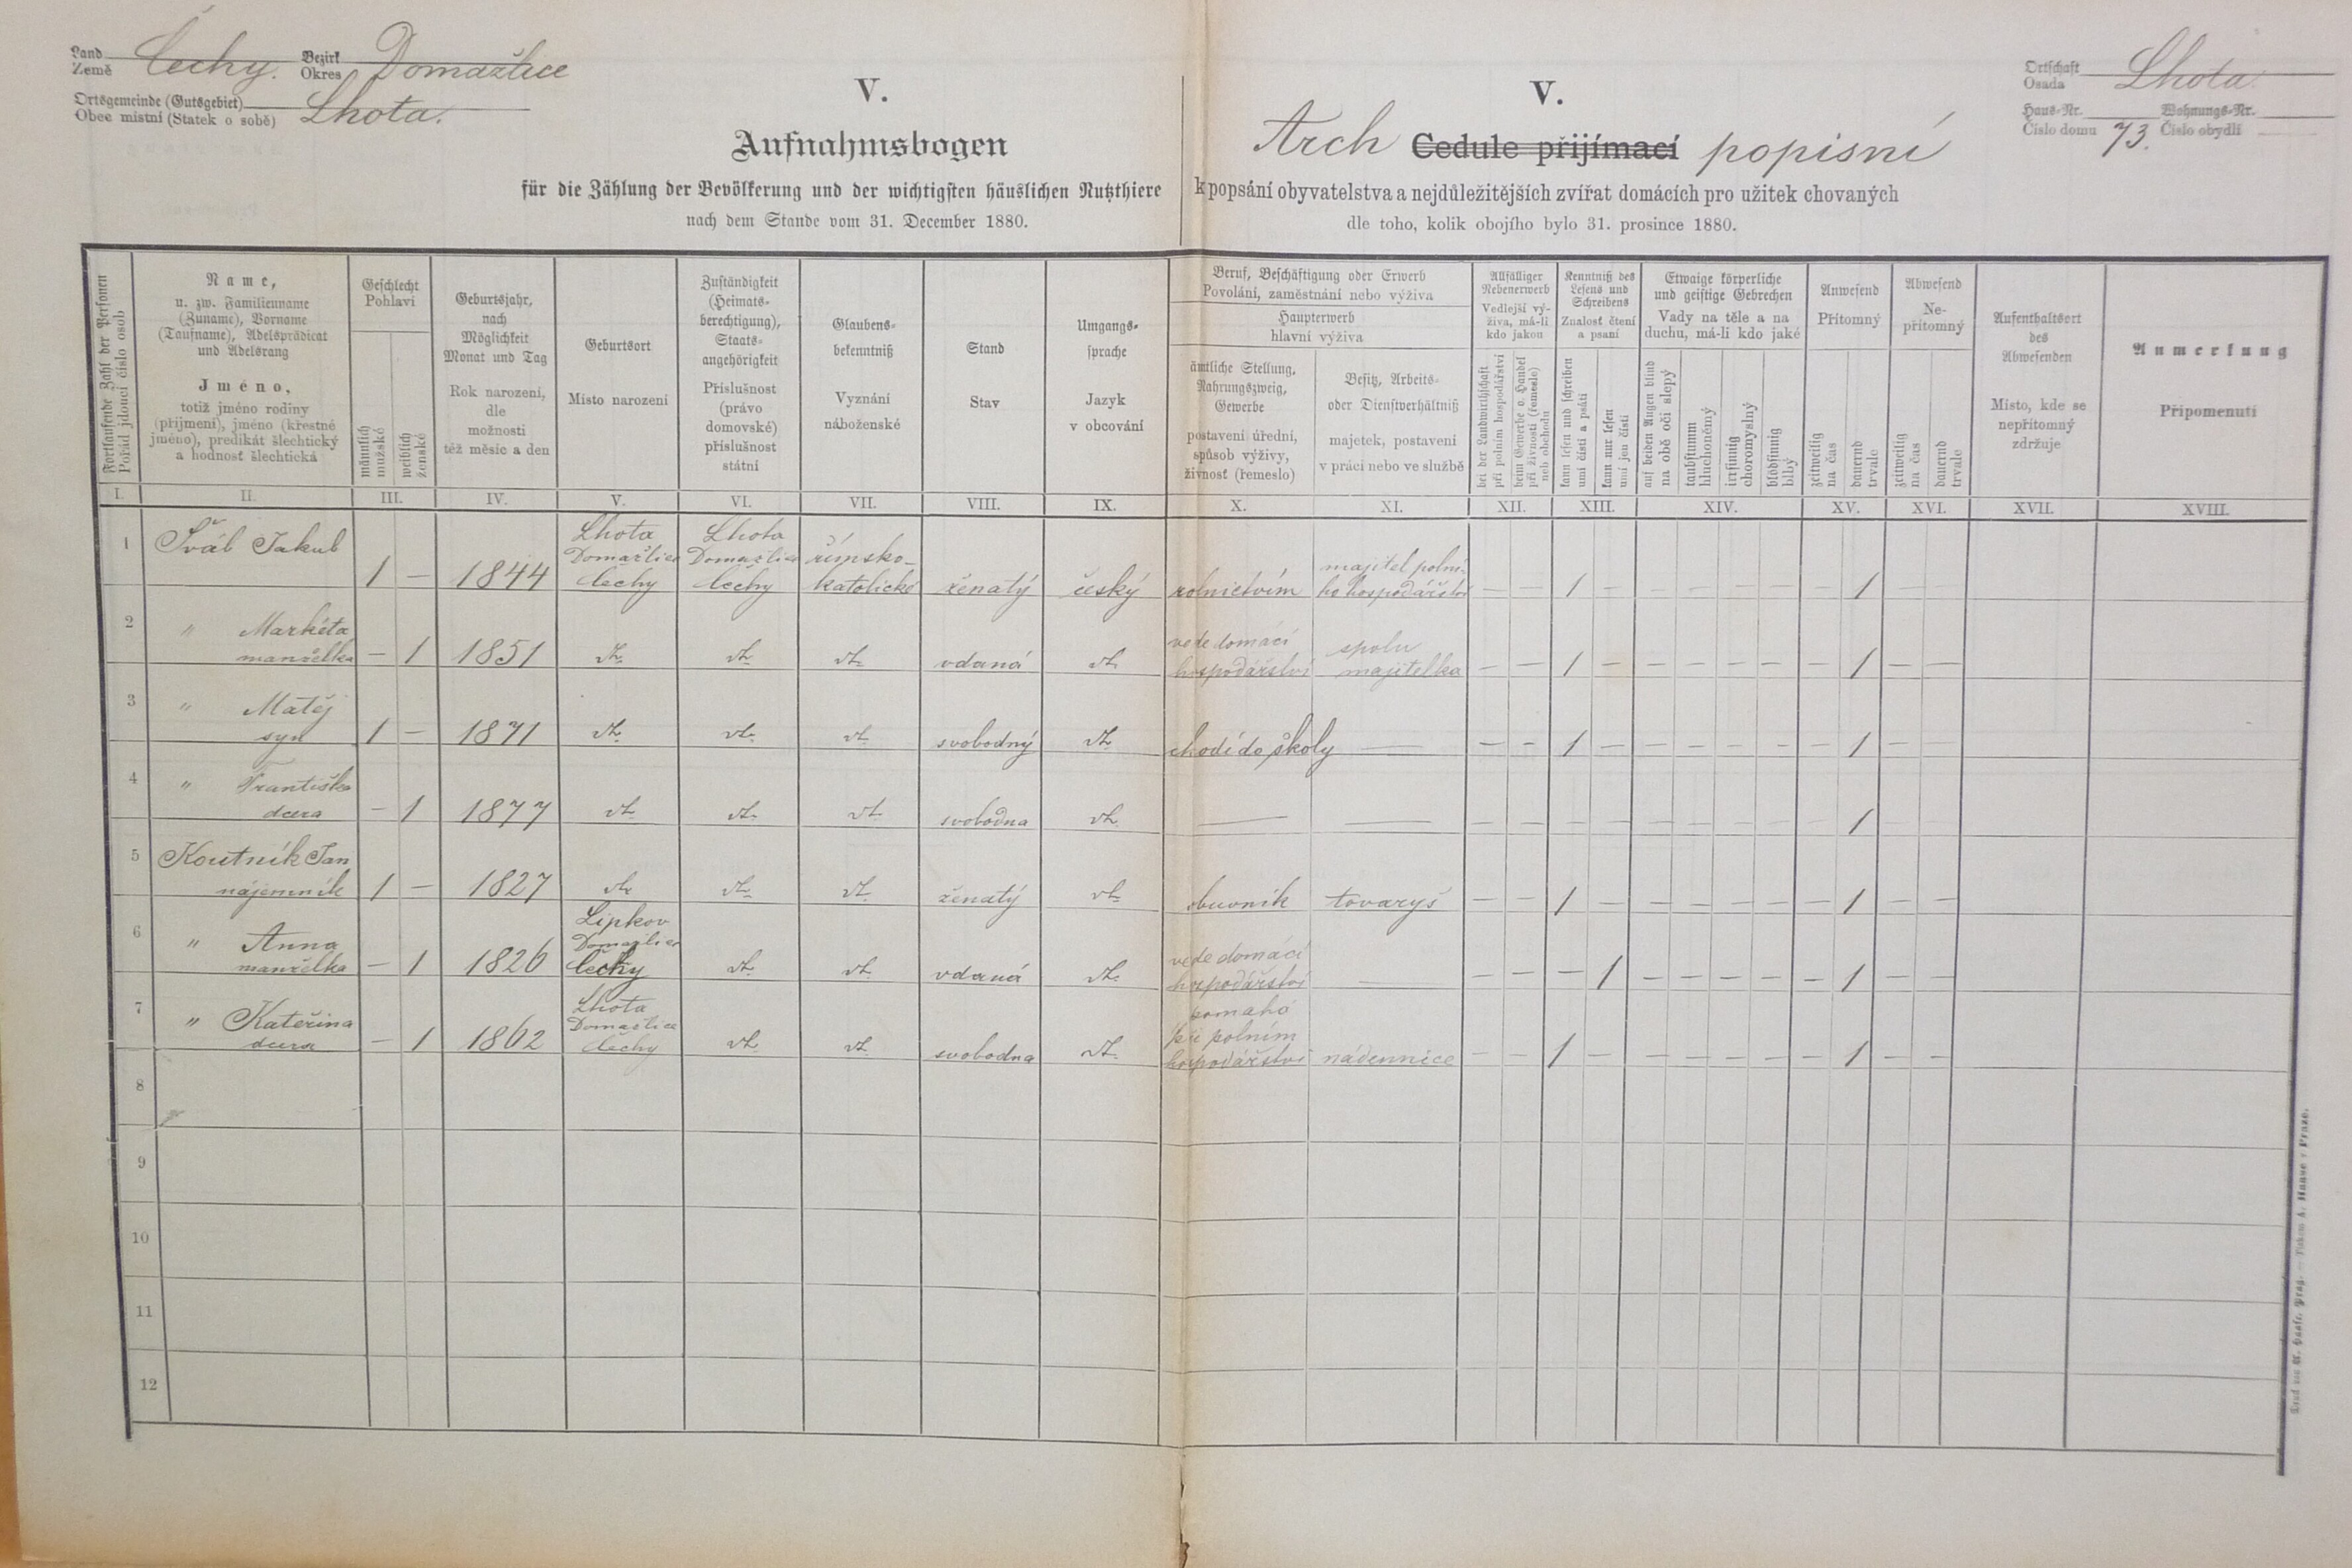 Land
Země Čechy.
Bezirk
Okres Domažlice
Ortsgemeinde (Gutsgebiet)
Obec místní (Statek o sobě) Lhota.
V.
Aufnahmsbogen
für die Zählung der Bevölkerung und der wichtigsten häuslichen Nutzthiere
nach dem Stande vom 31. December 1880.
V.
Arch Cedule přijímací popisní
k popsání obyvatelstva a nejdůležitějších zvířat domácích pro užitek chovaných
dle toho, kolik obojího bylo 31. prosince 1880.
Ortschaft
Osada Lhota
Haus-Nr. Wohnungs-Nr.
Číslo domu 73. Číslo obydlí
Fortlaufende Zahl der Personen
Pořád jdoucí číslo osob
Name,
u. zw. Familienname
(Zuname), Vorname
(Taufname), Adelsprädicat
und Adelsrang
Jméno,
totiž jméno rodiny
(příjmení), jméno (křestné
jméno), predikát šlechtický
a hodnost šlechtická
Geschlecht
Pohlaví
männlich
mužské
weiblich
ženské
Geburtsjahr,
nach
Möglichkeit
Monat und Tag
Rok narození,
dle
možnosti
též měsíc a den
Geburtsort
Místo narození
Zuständigkeit
(Heimats-
berechtigung),
Staats-
angehörigkeit
Příslušnost
(právo
domovské)
příslušnost
státní
Glaubens-
bekenntniß
Vyznání
náboženské
Stand
Stav
Umgangs-
sprache
Jazyk
v obcování
Beruf, Beschäftigung oder Erwerb
Povolání, zaměstnání nebo výživa
Haupterwerb
hlavní výživa
ämtliche Stellung,
Nahrungszweig,
Gewerbe
postavení úřední,
způsob výživy,
živnosť (řemeslo)
Besitz, Arbeits-
oder Dienstverhältniß
majetek, postavení
v práci nebo ve službě
Allfälliger
Nebenerwerb
Vedlejší vý-
živa, má-li
kdo jakou
bei der Landwirthschaft
při polním hospodářství
beim Gewerbe o. Handel
při živnosti (řemesle)
neb obchodu
Kenntniß des
Lesens und
Schreibens
Znalosť čtení
a psaní
kann lesen und schreiben
umí čísti a psáti
kann nur lesen
umí jen čísti
Etwaige körperliche
und geistige Gebrechen
Vady na těle a na
duchu, má-li kdo jaké
auf beiden Augen blind
na obě oči slepý
taubstumm
hluchoněmý
irrsinnig
choromyslný
blödsinnig
blbý
Anwesend
Přítomný
zeitweilig
na čas
dauernd
trvale
Abwesend
Ne-
přítomný
zeitweilig
na čas
dauernd
trvale
Aufenthaltsort
des
Abwesenden
Místo, kde se
nepřítomný
zdržuje
Anmerkung
Připomenutí
I. II. III. IV. V. VI. VII. VIII. IX. X. XI. XII. XIII. XIV. XV. XVI. XVII. XVIII.
1 Šváb Jakub 1 — 1844 Lhota Domažlice Čechy Lhota Domažlice Čechy římsko-katolické ženatý český rolnictvím majitel polního hospodářství — — 1 — — — — — — 1 — —
2 " Markéta manželka — 1 1851 dt. dt. dt. vdaná dt. vede domácí hospodářství spolu majitelka — — 1 — — — — — — 1 — —
3 " Matěj syn 1 — 1871 dt. dt. dt. svobodný dt. chodí do školy — — — 1 — — — — — — 1 — —
4 " Františka dcera — 1 1877 dt. dt. dt. svobodna dt. — — — — — — — — — — — 1 — —
5 Koutník Jan nájemník 1 — 1827 dt. dt. dt. ženatý dt. obuvník tovaryš — — 1 — — — — — — 1 — —
6 " Anna manželka — 1 1826 Lipkov Domažlice Čechy dt. dt. vdaná dt. vede domácí hospodářství — — — — 1 — — — — — 1 — —
7 " Kateřina dcera — 1 1862 Lhota Domažlice Čechy dt. dt. svobodna dt. pomahá při polním hospodářství nádennice — — 1 — — — — — — 1 — —
8
9
10
11
12